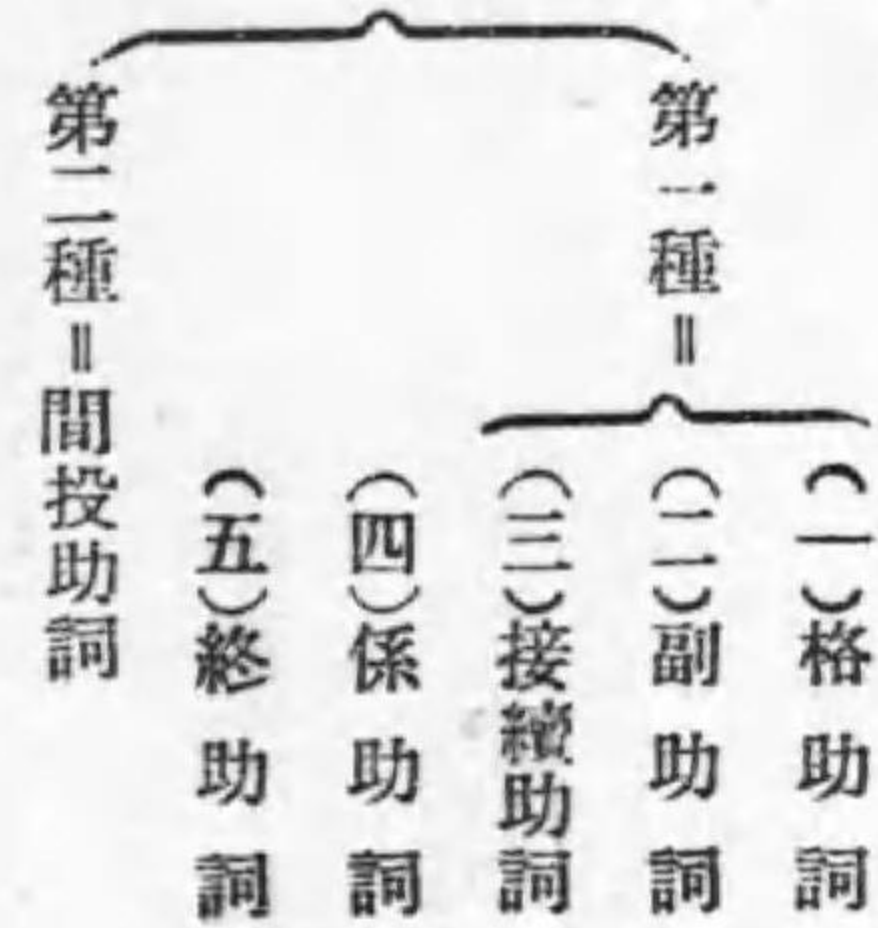 第一種＝
（一）格助詞
（二）副助詞
（三）接續助詞
（四）係助詞
（五）終助詞
第二種＝間投助詞